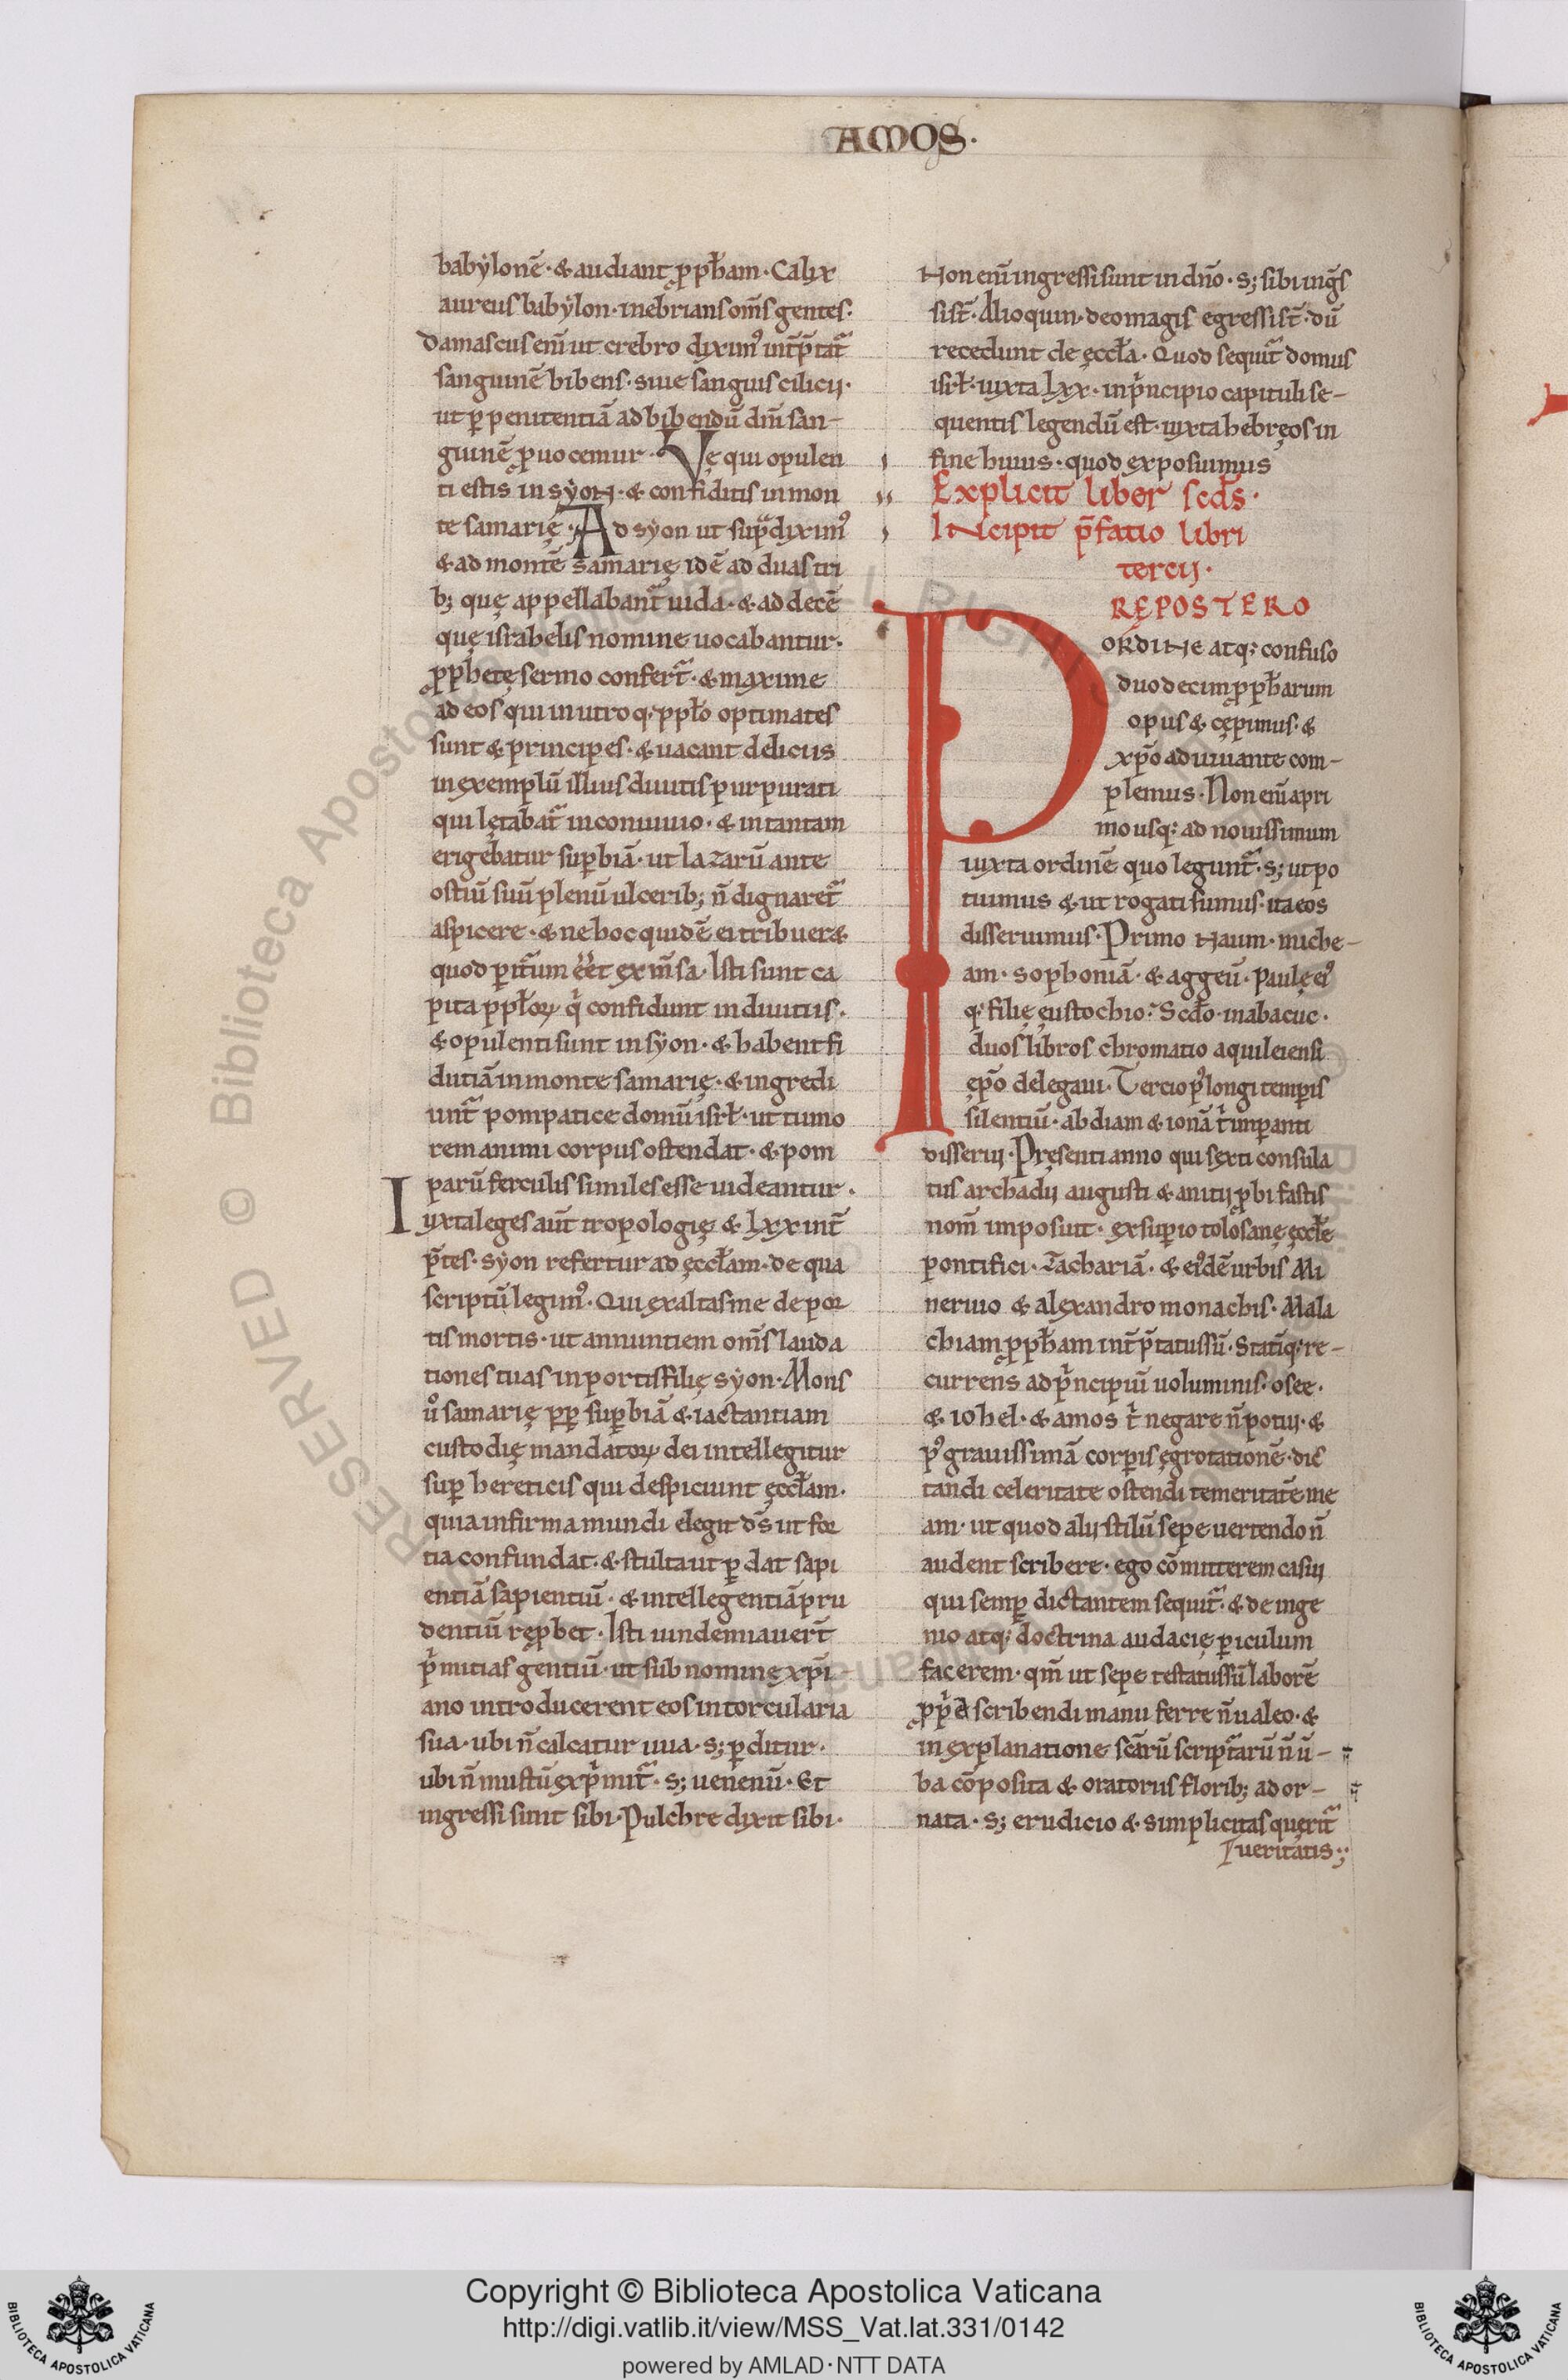 AMOS.
babẏlonē · & audiant ꝓph̄am · Calix
aureus babẏlon · inebrians om̄s gentes ·
Damascus eni̅ ut crebro diximꝰ int̄p̄tat᷑
sanguinē bibens · siue sanguis cilicij ·
ut p̲ penitentiā ad bibendū dn̄i san-
guinē ꝓuocemur · Vę qui opulen
ti estis in sẏoN · & confiditis in mon
te samarię · Ad sẏon ut sup̲ᵃ diximꝰ
& ad montē samarię idē ad duas tri
b; quę appellabant᷑ iuda · & ad decē
quę israhelis nomine uocabantur ·
ꝓphetę sermo confert᷑ · & maxime
ad eos qui in utroq · ppl̄o optimates
sunt & principes · & uacant deliciis
in exemplū illius diuitis purpurati
qui lętabat᷑ in conuiuio · & in tantam
erigebatur sup̲biā · ut lazarū ante
ostiū suū plenū ulcerib; n̄ dignaret᷑
aspicere · & ne hoc quidē ei tribuer&
quod p̲it᷑um ēēt ex m̄sa · Isti sunt ca
pita ppl̄oꝝ qͥ confidunt in diuitiis ·
& opulenti sunt in sẏon · & habent fi
dutiā in monte samarię · & ingredi
unt᷑ pompatice domū isrl̄ · ut tumo
rem animi corpus ostendat · & pom
parū ferculis similes esse uideantur ·
Iuxta leges aut̄ tropologię & lxx int̄
p̄tes · sẏon refertur ad ęccl̄am · de qua
scriptū legimꝰ · Qui exaltas me de por
tis mortis · ut annuntiem om̄s lauda
tiones tuas in portis filię sẏon · Mons
uͦ samarię p̲p̲ sup̲biā & iactantiam
custodię mandatoꝝ dei intellegitur
sup̲ hereticis qui despiciunt ęccl̄am ·
quia infirma mundi elegit ds̄ ut for
tia confundat · & stulta ut p̲dat sapi
entiā sapientiū · & intellegentiā pru
dentiū rep̲bet · Isti uindemiauer̄t
pͥmitias gentiū · ut sub nomine xp̄i-
ano introducerent eos in torcularia
sua · ubi n̄ calcatur uua · s; p̲ditur ·
ubi n̄ mustū expͥmit᷑ · s; uenenū · Et
ingressi sunt sibi · Pulchre dixit sibi ·
Non eni̅ ingressi sunt in dn̄o · s; sibi ing̅s
sis̄t · Alioquin · deo magis egressis̄t · dū
recedunt de ęccl̄a · Quod sequit᷑ domus
isrl̄ · iuxta lxx · in pͥncipio capituli se-
quentis legendū est · iuxta hebręos in
fine huius · quod exposuimus
Explicit liber scd̄s ·
INcipit p̄fatio libri
tercij ·
PRĘPOSTERO
ORDINE atq; confuso
duodecim ꝓph̄arum
opus & cępimus · &
xp̄o adiuuante com-
plemus · Non eni̅ a pri
mo usq; ad nouissimum
iuxta ordinē quo legunt᷑ · s; ut po
tuimus & ut rogati sumus · ita eos
disseruimus · Primo Naum · miche-
am · sophoniā · & aggeū · paulę eiꝰ
q; filię eustochio · Scd̄o · in abacuc ·
duos libros chromatio aquileiensi
ep̄o delegaui · Tercio pꝰ longi temp̲is
silentiū · abdiam & ionā tͥ imp̲anti
disserij · Pręsenti anno qui sexti consula
tus archadij augusti & anitij ꝓbi fastis
nom̄ imposuit · exsup̲io tolosanę ęccl̄e
pontifici · Zachariā · & eiꝰdē urbis Mi
neruo & alexandro monachis · Mala
chiam ꝓph̄am int̄p̄tatus sū · Statīq; re-
currens ad pͥncipiū uoluminis · osee ·
& iohel · & amos tͥ negare n̄ potui · &
pꝰ grauissimā corp̲is ęgrotationē · dic
tandi celeritate ostendi temeritatē me
am · ut quod alij stilū sepe uertendo n̄
audent scribere · ego cōmitterem casui
qui semp̲ dictantem sequit᷑ · & de inge
nio atq; doctrina audacię p̲iculum
facerem · qm̄ ut sepe testatus sū laborē
ꝓpͥa scribendi manu ferre n̄ ualeo · &
in explanatione sc̄arū script᷑arū n̄ ū-
ba cōposita & oratoriis florib; ador-
nata · s; erudicio & simplicitas querit᷑
ueritatis ·;
© Biblioteca Apostolica Vaticana ALL RIGHTS RESERVED
Copyright © Biblioteca Apostolica Vaticana
http://digi.vatlib.it/view/MSS_Vat.lat.331/0142
powered by AMLAD·NTT DATA
BIBLIOTECA APOSTOLICA VATICANA
BIBLIOTECA APOSTOLICA VATICANA